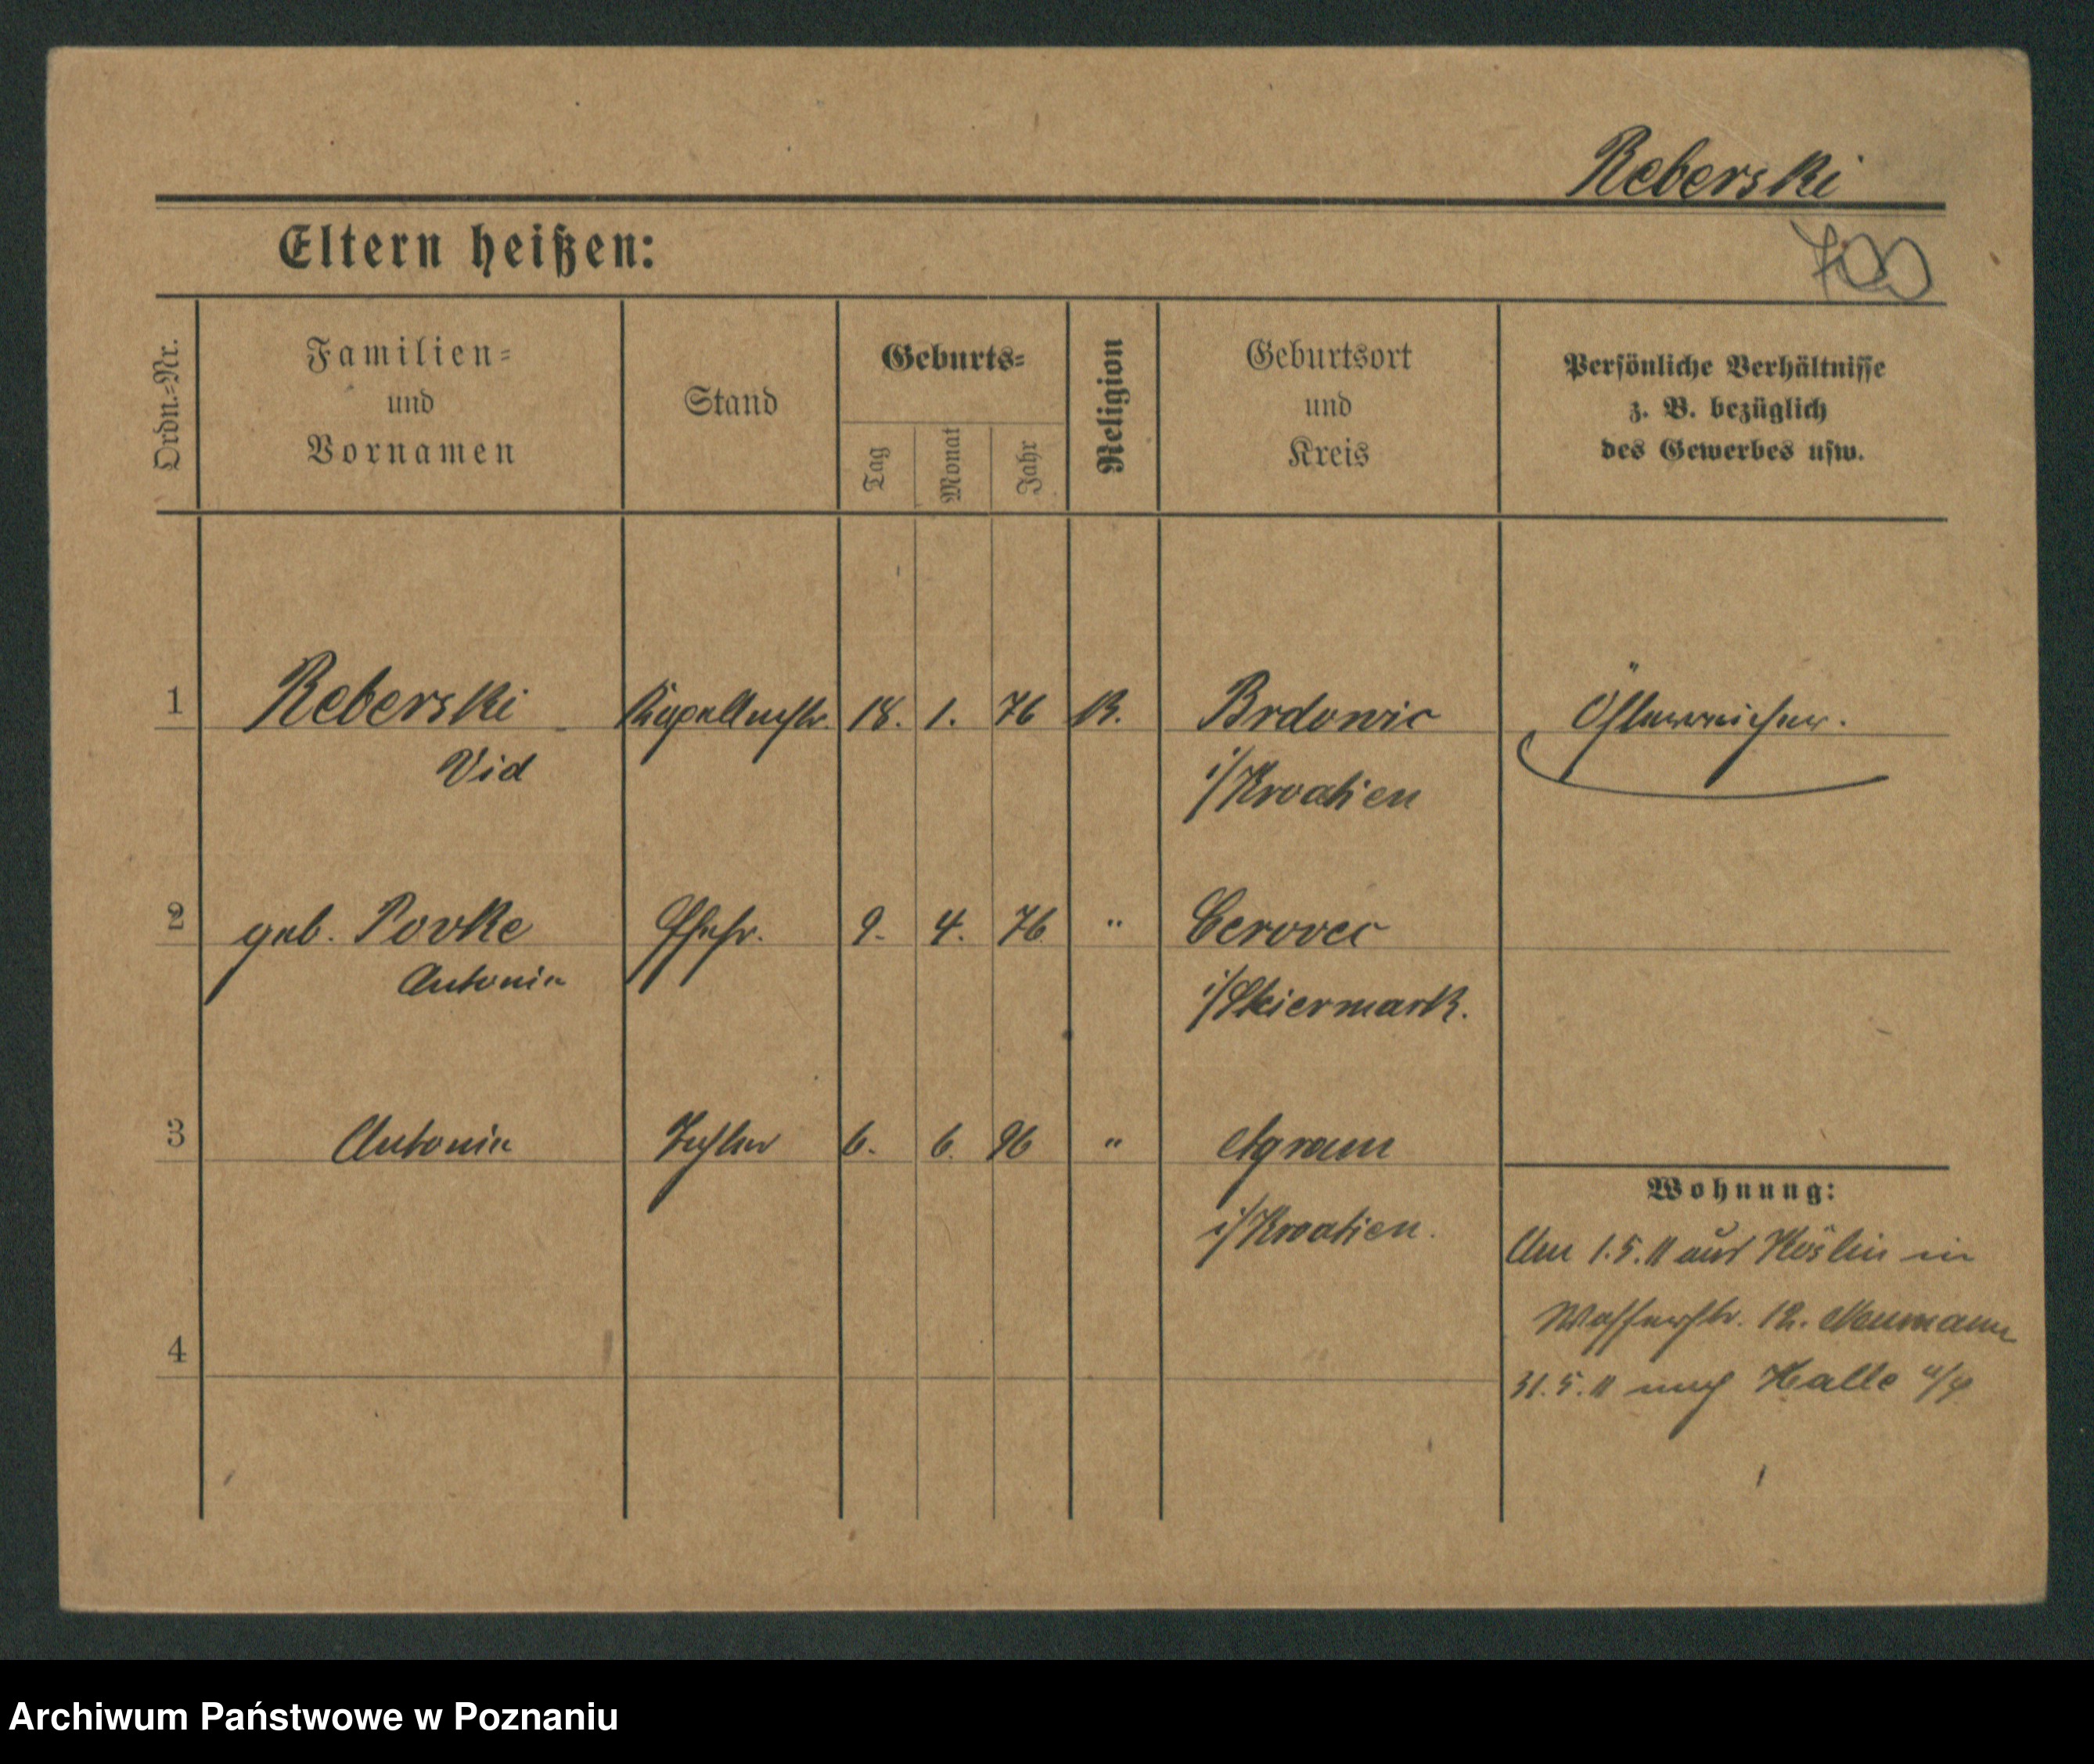 Reberski
Eltern heißen:
700
Ordn.-Nr.
Familien-
und
Vornamen
Stand
Geburts-
Tag
Monat
Jahr
Religion
Geburtsort
und
Kreis
Persönliche Verhältnisse
z. B. bezüglich
des Gewerbes usw.
1 Reberski Kapellmstr. 18. 1. 76 K. Brdovic Österreicher.
Vid i/Kroatien
2 geb. Povke Ehefr. 9. 4. 76 " Cerovec
Antonia i/Steiermark.
3 Antonia Tochter 6. 6. 96 " Agram
i/Kroatien.
Wohnung:
Am 1.5.11 aus Köslin in
Wasserstr. 12. Neumann
4
31.5.11 nach Halle a/S
Archiwum Państwowe w Poznaniu